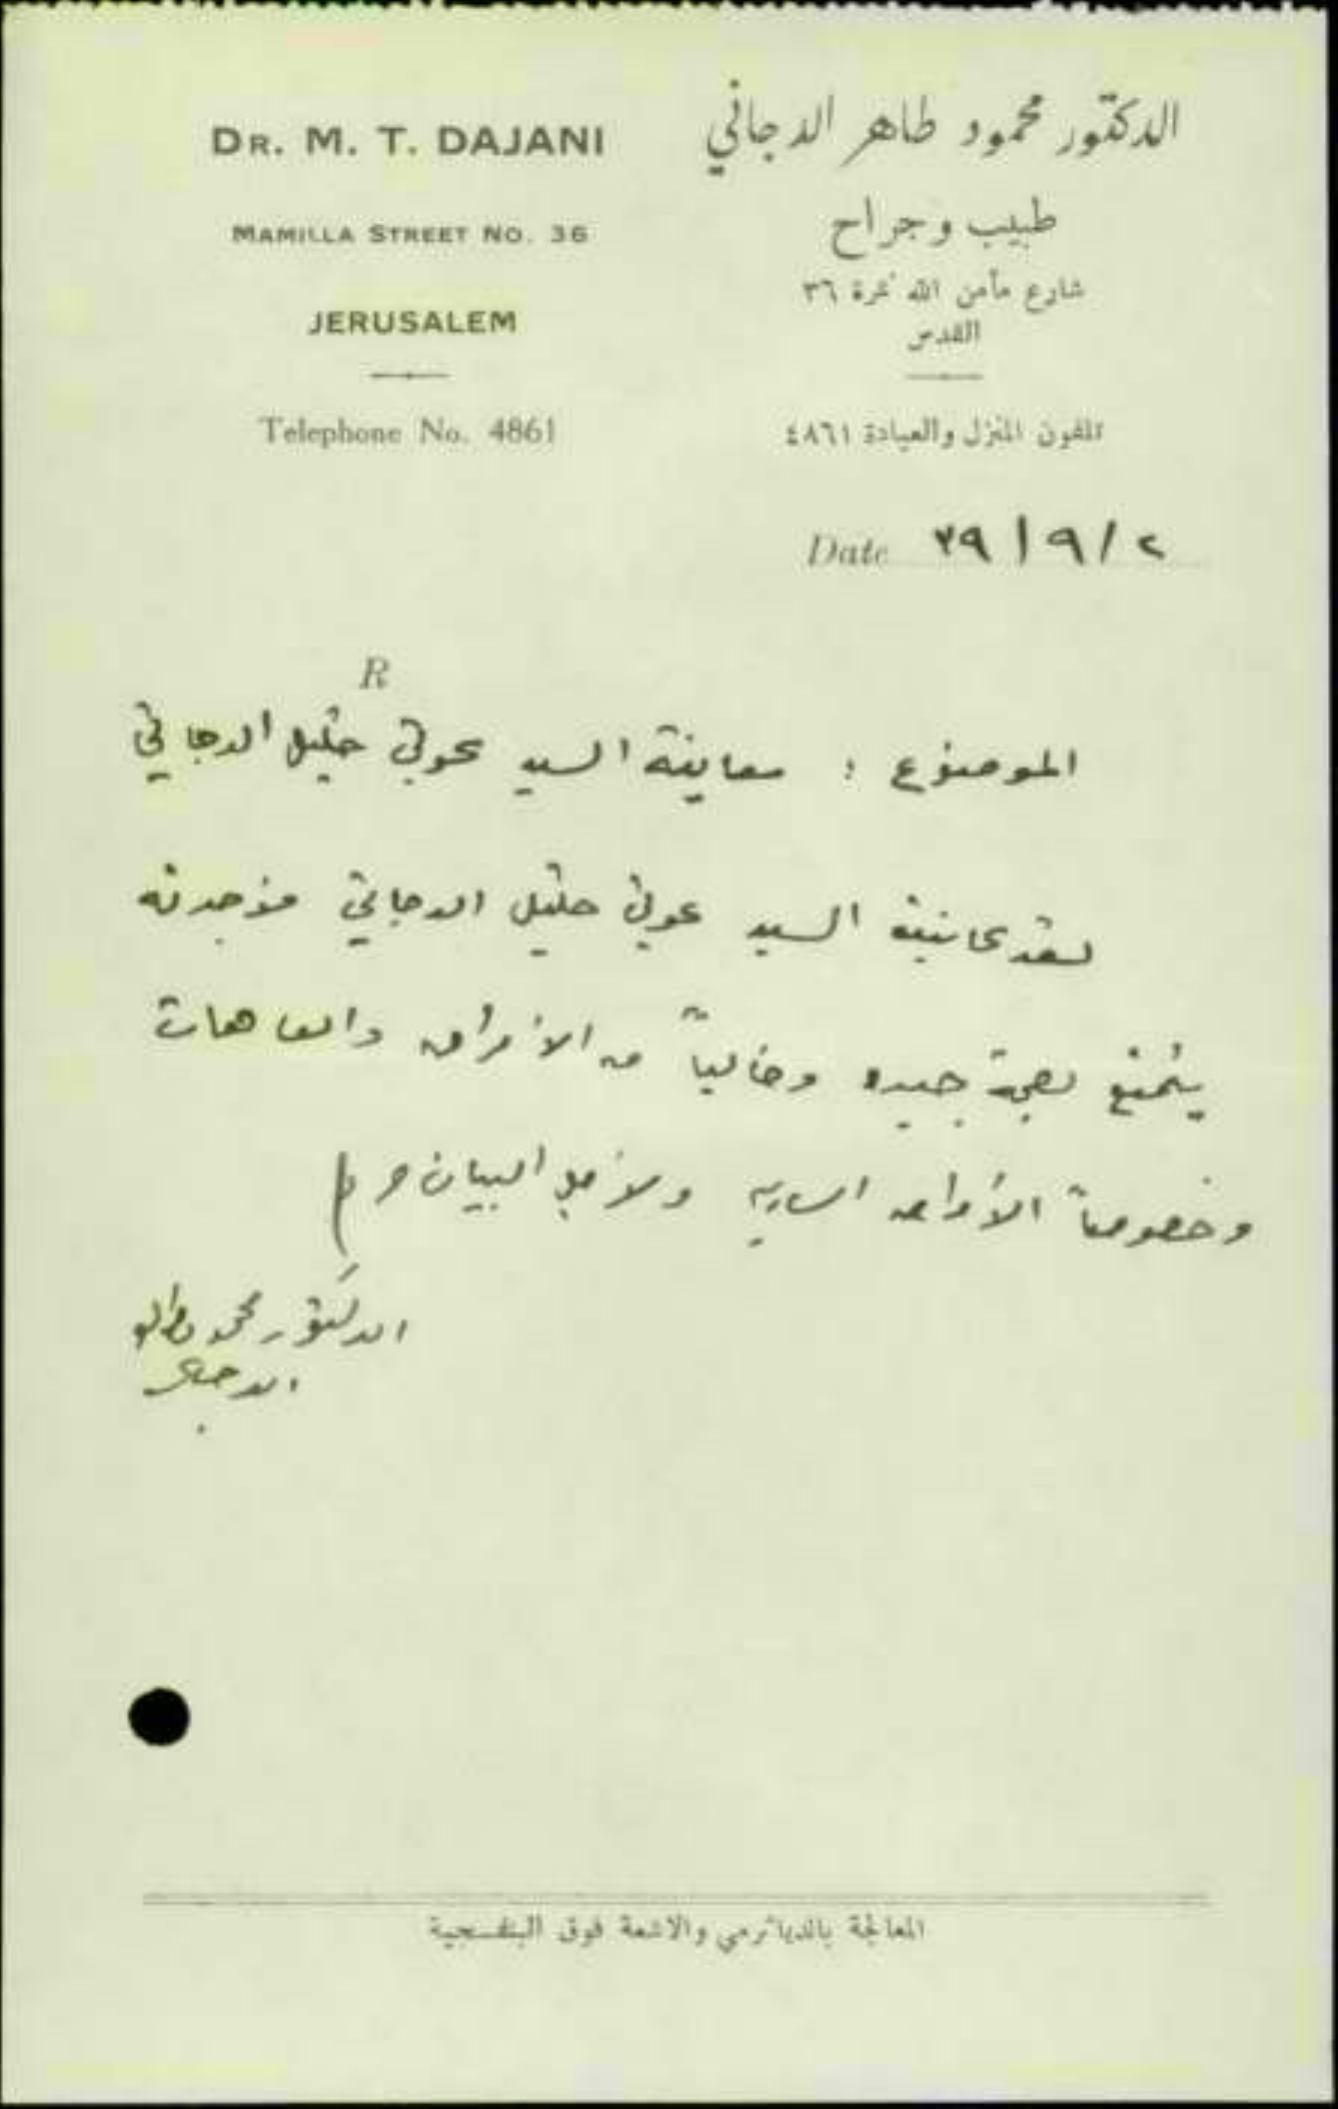 DR. M. T. DAJANI
MAMILLA STREET NO. 36
JERUSALEM
Telephone No. 4861
الدكتور محمود طاهر الدجاني
طبيب وجراح
شارع مأمن الله نمرة ٣٦
القدس
تلفون المنزل والعيادة ٤٨٦١
Date ٣٩/٩/٢
R
الموضوع : معاينة السيد عوني خليل الدجاني
لقد عاينت السيد عوني خليل الدجاني فوجدته
يتمتع بصحة جيده وخالياً من الأمراض والعاهات
وخصوصاً الأمراض الساريه ولأجل البيان
الدكتور محمود طاهر
الدجاني
المعالجة بالدياترمي والاشعة فوق البنفسجية